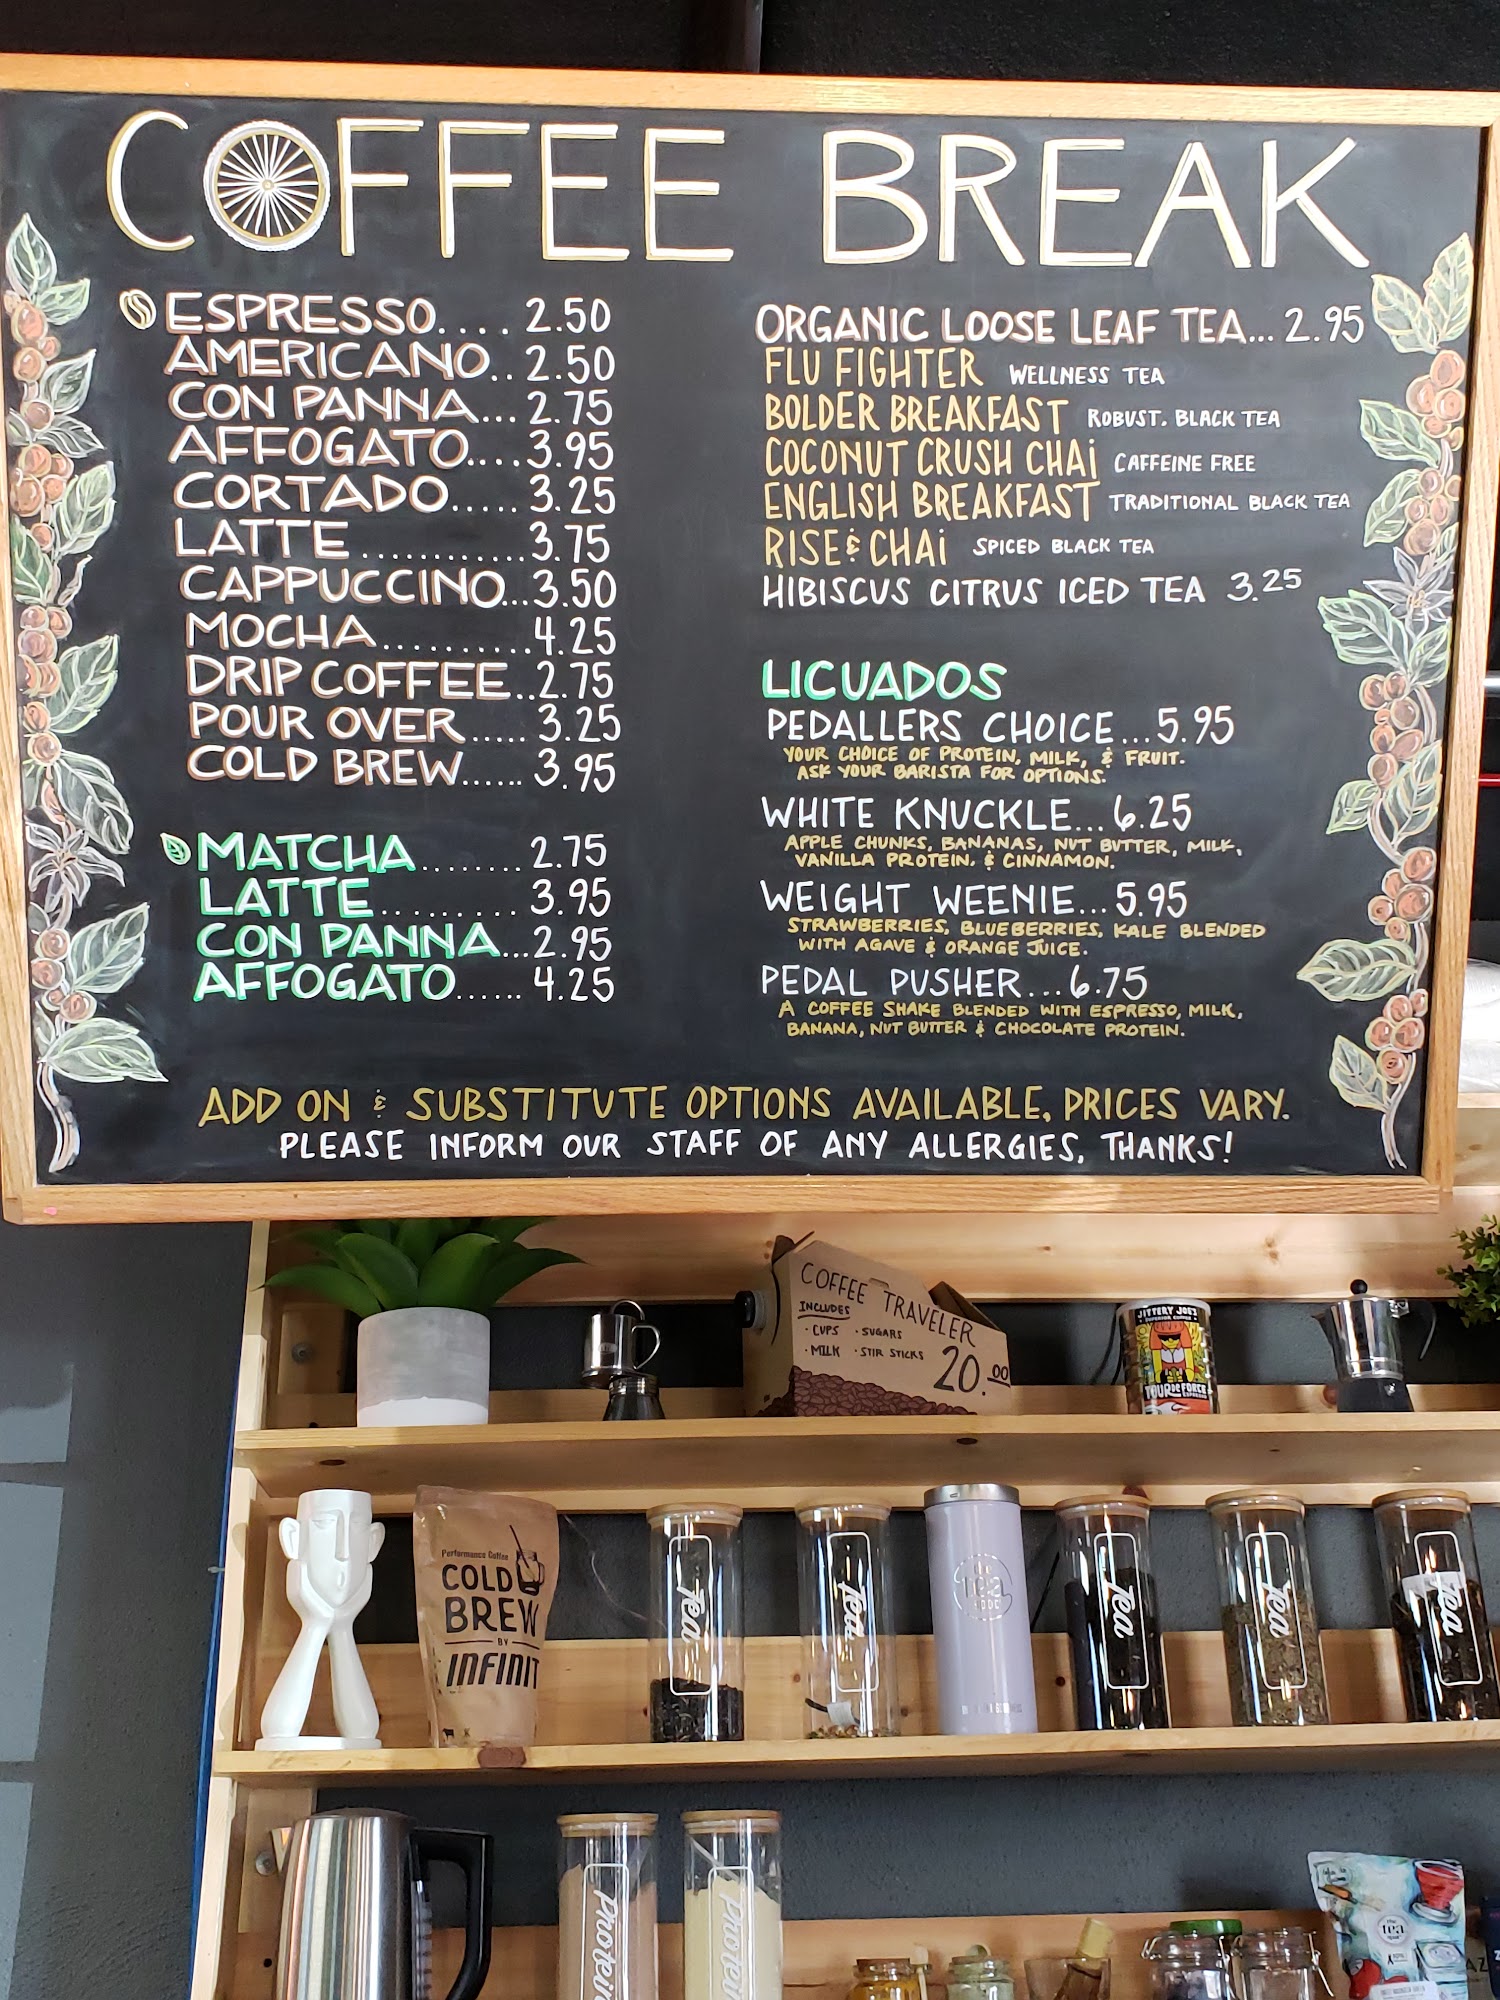 COFFEE BREAK
ESPRESSO.... 2.50
AMERICANO.. 2.50
CON PANNA... 2.75
AFFOGATO.... 3.95
CORTADO..... 3.25
LATTE ............ 3.75
CAPPUCCINO... 3.50
MOCHA........... 4.25
DRIP COFFEE.. 2.75
POUR OVER ..... 3.25
COLD BREW...... 3.95
MATCHA........ 2.75
LATTE.......... 3.95
CON PANNA... 2.95
AFFOGATO...... 4.25
ORGANIC LOOSE LEAF TEA... 2.95
FLU FIGHTER WELLNESS TEA
BOLDER BREAKFAST ROBUST. BLACK TEA
COCONUT CRUSH CHAi CAFFEINE FREE
ENGLISH BREAKFAST TRADITIONAL BLACK TEA
RISE & CHAi SPICED BLACK TEA
HIBISCUS CITRUS ICED TEA 3.25
LICUADOS
PEDALLERS CHOICE...5.95
YOUR CHOICE OF PROTEIN, MILK, & FRUIT.
ASK YOUR BARISTA FOR OPTIONS.
WHITE KNUCKLE... 6.25
APPLE CHUNKS, BANANAS, NUT BUTTER, MILK,
VANILLA PROTEIN. & CINNAMON.
WEIGHT WEENIE... 5.95
STRAWBERRIES, BLUEBERRIES, KALE BLENDED
WITH AGAVE & ORANGE JUICE.
PEDAL PUSHER... 6.75
A COFFEE SHAKE BLENDED WITH ESPRESSO, MILK,
BANANA, NUT BUTTER & CHOCOLATE PROTEIN.
ADD ON & SUBSTITUTE OPTIONS AVAILABLE, PRICES VARY.
PLEASE INFORM OUR STAFF OF ANY ALLERGIES, THANKS!
COFFEE TRAVELER
INCLUDES
· CUPS · SUGARS
· MILK · STIR STICKS
20.00
JITTERY JOE'S
SUPERIOR COFFEE
TOUR de FORCE
ESPRESSO
Performance Coffee
COLD
BREW
BY
INFINIT
Tea
Tea
the
tea
spot
Tea
Tea
Tea
Protein
Protein
the
tea
spot